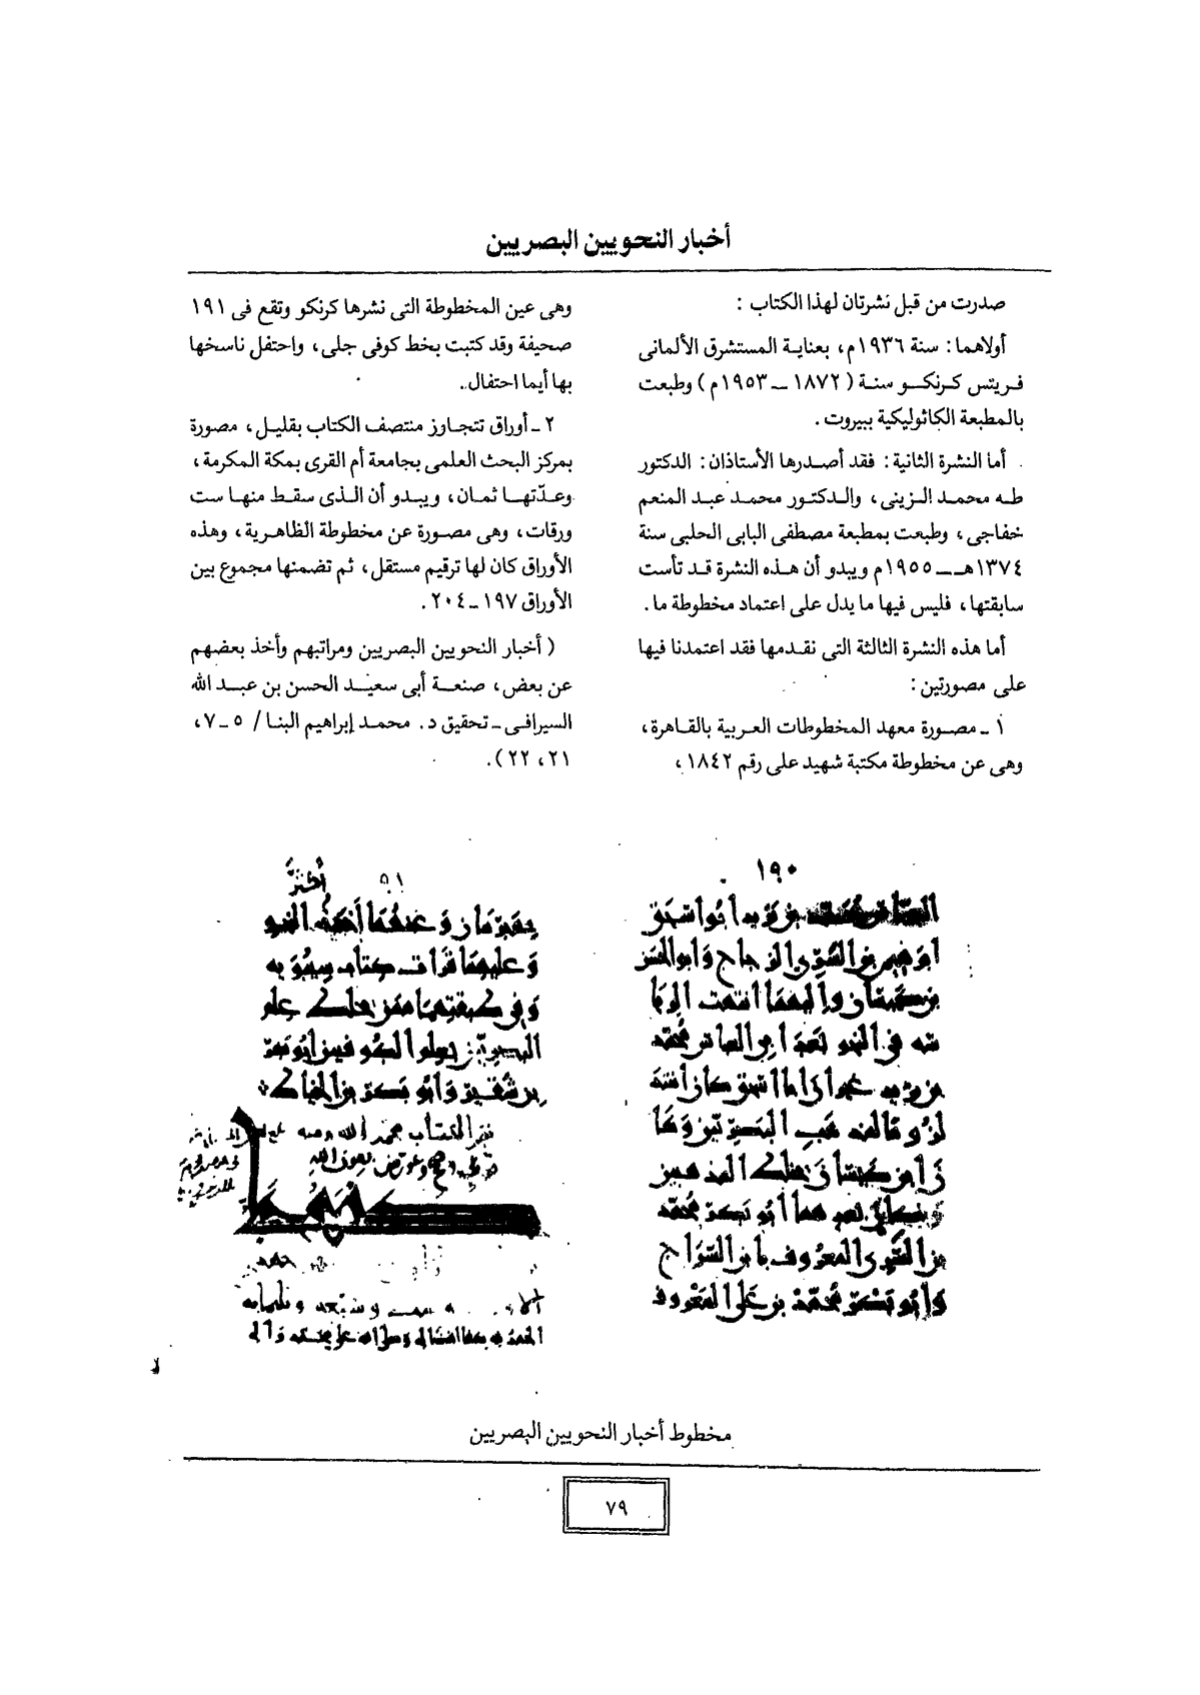 أخبار النحويين البصريين
صدرت من قبل نشرتان لهذا الكتاب :
أولاهما : سنة ١٩٣٦م، بعناية المستشرق الألمانى
فريتس كرنكو سنة ( ١٨٧٢ ــ ١٩٥٣م ) وطبعت
بالمطبعة الكاثوليكية ببيروت .
أما النشرة الثانية : فقد أصدرها الأستاذان : الدكتور
طه محمد الزينى، والدكتور محمد عبد المنعم
خفاجى، وطبعت بمطبعة مصطفى البابى الحلبى سنة
١٣٧٤هـ ــ ١٩٥٥م ويبدو أن هذه النشرة قد تأست
سابقتها، فليس فيها ما يدل على اعتماد مخطوطة ما.
أما هذه النشرة الثالثة التى نقدمها فقد اعتمدنا فيها
على مصورتين :
١ ـ مصورة معهد المخطوطات العربية بالقاهرة،
وهى عن مخطوطة مكتبة شهيد على رقم ١٨٤٢ ،
وهى عين المخطوطة التى نشرها كرنكو وتقع فى ١٩١
صحيفة وقد كتبت بخط كوفى جلى، واحتفل ناسخها
بها أيما احتفال.
٢ ـ أوراق تتجاوز منتصف الكتاب بقليل، مصورة
بمركز البحث العلمى بجامعة أم القرى بمكة المكرمة،
وعدّتها ثمان، ويبدو أن الذى سقط منها ست
ورقات، وهى مصورة عن مخطوطة الظاهرية، وهذه
الأوراق كان لها ترقيم مستقل، ثم تضمنها مجموع بين
الأوراق ١٩٧ ـ ٢٠٤ .
( أخبار النحويين البصريين ومراتبهم وأخذ بعضهم
عن بعض، صنعة أبى سعيد الحسن بن عبد الله
السيرافى ـ تحقيق د. محمد إبراهيم البنا / ٥ ـ ٧،
٢١، ٢٢ ).
١٩٠
ابرهيم بن السرى الزجاج وابو الحسن
بن كيسان واليهما انتهت الريا
سه فى النحو بعد ابى العباس محمد
بن يزيد
بن السرى المعروف بابن السراج
وابو بكر محمد بن على المعروف
وعليهما قرأت كتاب سيبويه
وفى طبقتهما ممن
بن شقير وابو بكر بن الخياط
مخطوط أخبار النحويين البصريين
٧٩